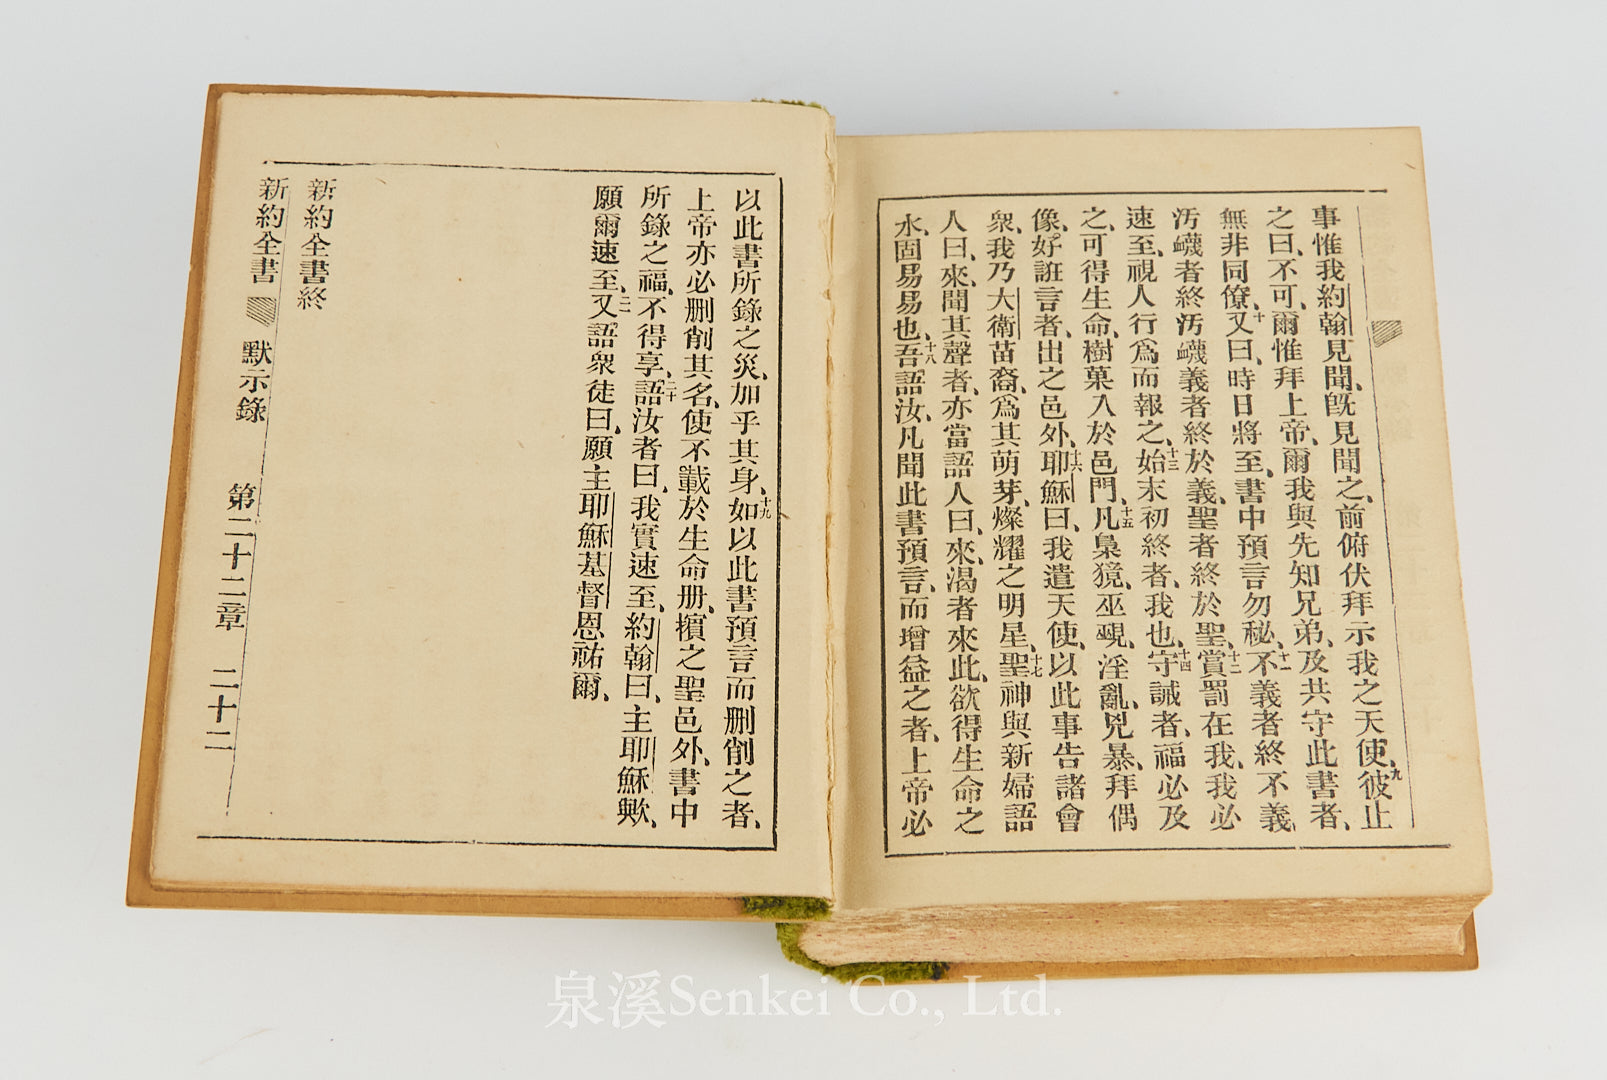 事惟我約翰見聞、旣見聞之、前俯伏拜示我之天使、九彼止
之曰、不可、爾惟拜上帝、爾我與先知兄弟、及共守此書者、
無非同僚、十又曰、時日將至、書中預言勿秘、十一不義者終不義、
汚衊者終汚衊、義者終於義、聖者終於聖、十二賞罰在我、我必
速至、視人行爲而報之、十三始末初終者、我也、十四守誡者、福必及
之、可得生命樹菓、入於邑門、十五凡梟獍、巫覡、淫亂、兇暴、拜偶
像、好誑言者、出之邑外、十六耶穌曰、我遣天使、以此事告諸會
衆、我乃大衛苗裔、爲其萌芽、燦耀之明星、十七聖神與新婦語
人曰、來、聞其聲者、亦當語人曰、來、渴者來此、欲得生命之
水、固易易也、十八吾語汝、凡聞此書預言、而增益之者、上帝必
以此書所錄之災、加乎其身、十九如以此書預言而刪削之者、
上帝亦必刪削其名、使不載於生命册、擯之聖邑外、書中
所錄之福、不得享、二十語汝者曰、我實速至、約翰曰、主耶穌歟、
願爾速至、二一又語衆徒曰、願主耶穌基督恩祐爾、
新約全書終
新約全書 默示錄 第二十二章 二十二
泉溪Senkei Co., Ltd.